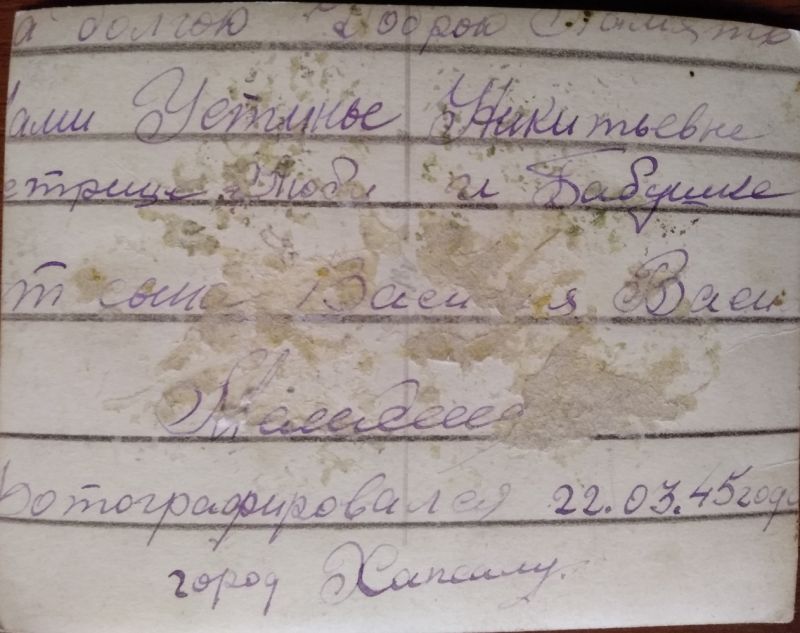 а долгою Доброю Память
Мами Устинье Никитьевне
етрице Любе и Бабушке
от сына Василия Васи
Фотографировался 22.03.45 года
город Хапсалу.